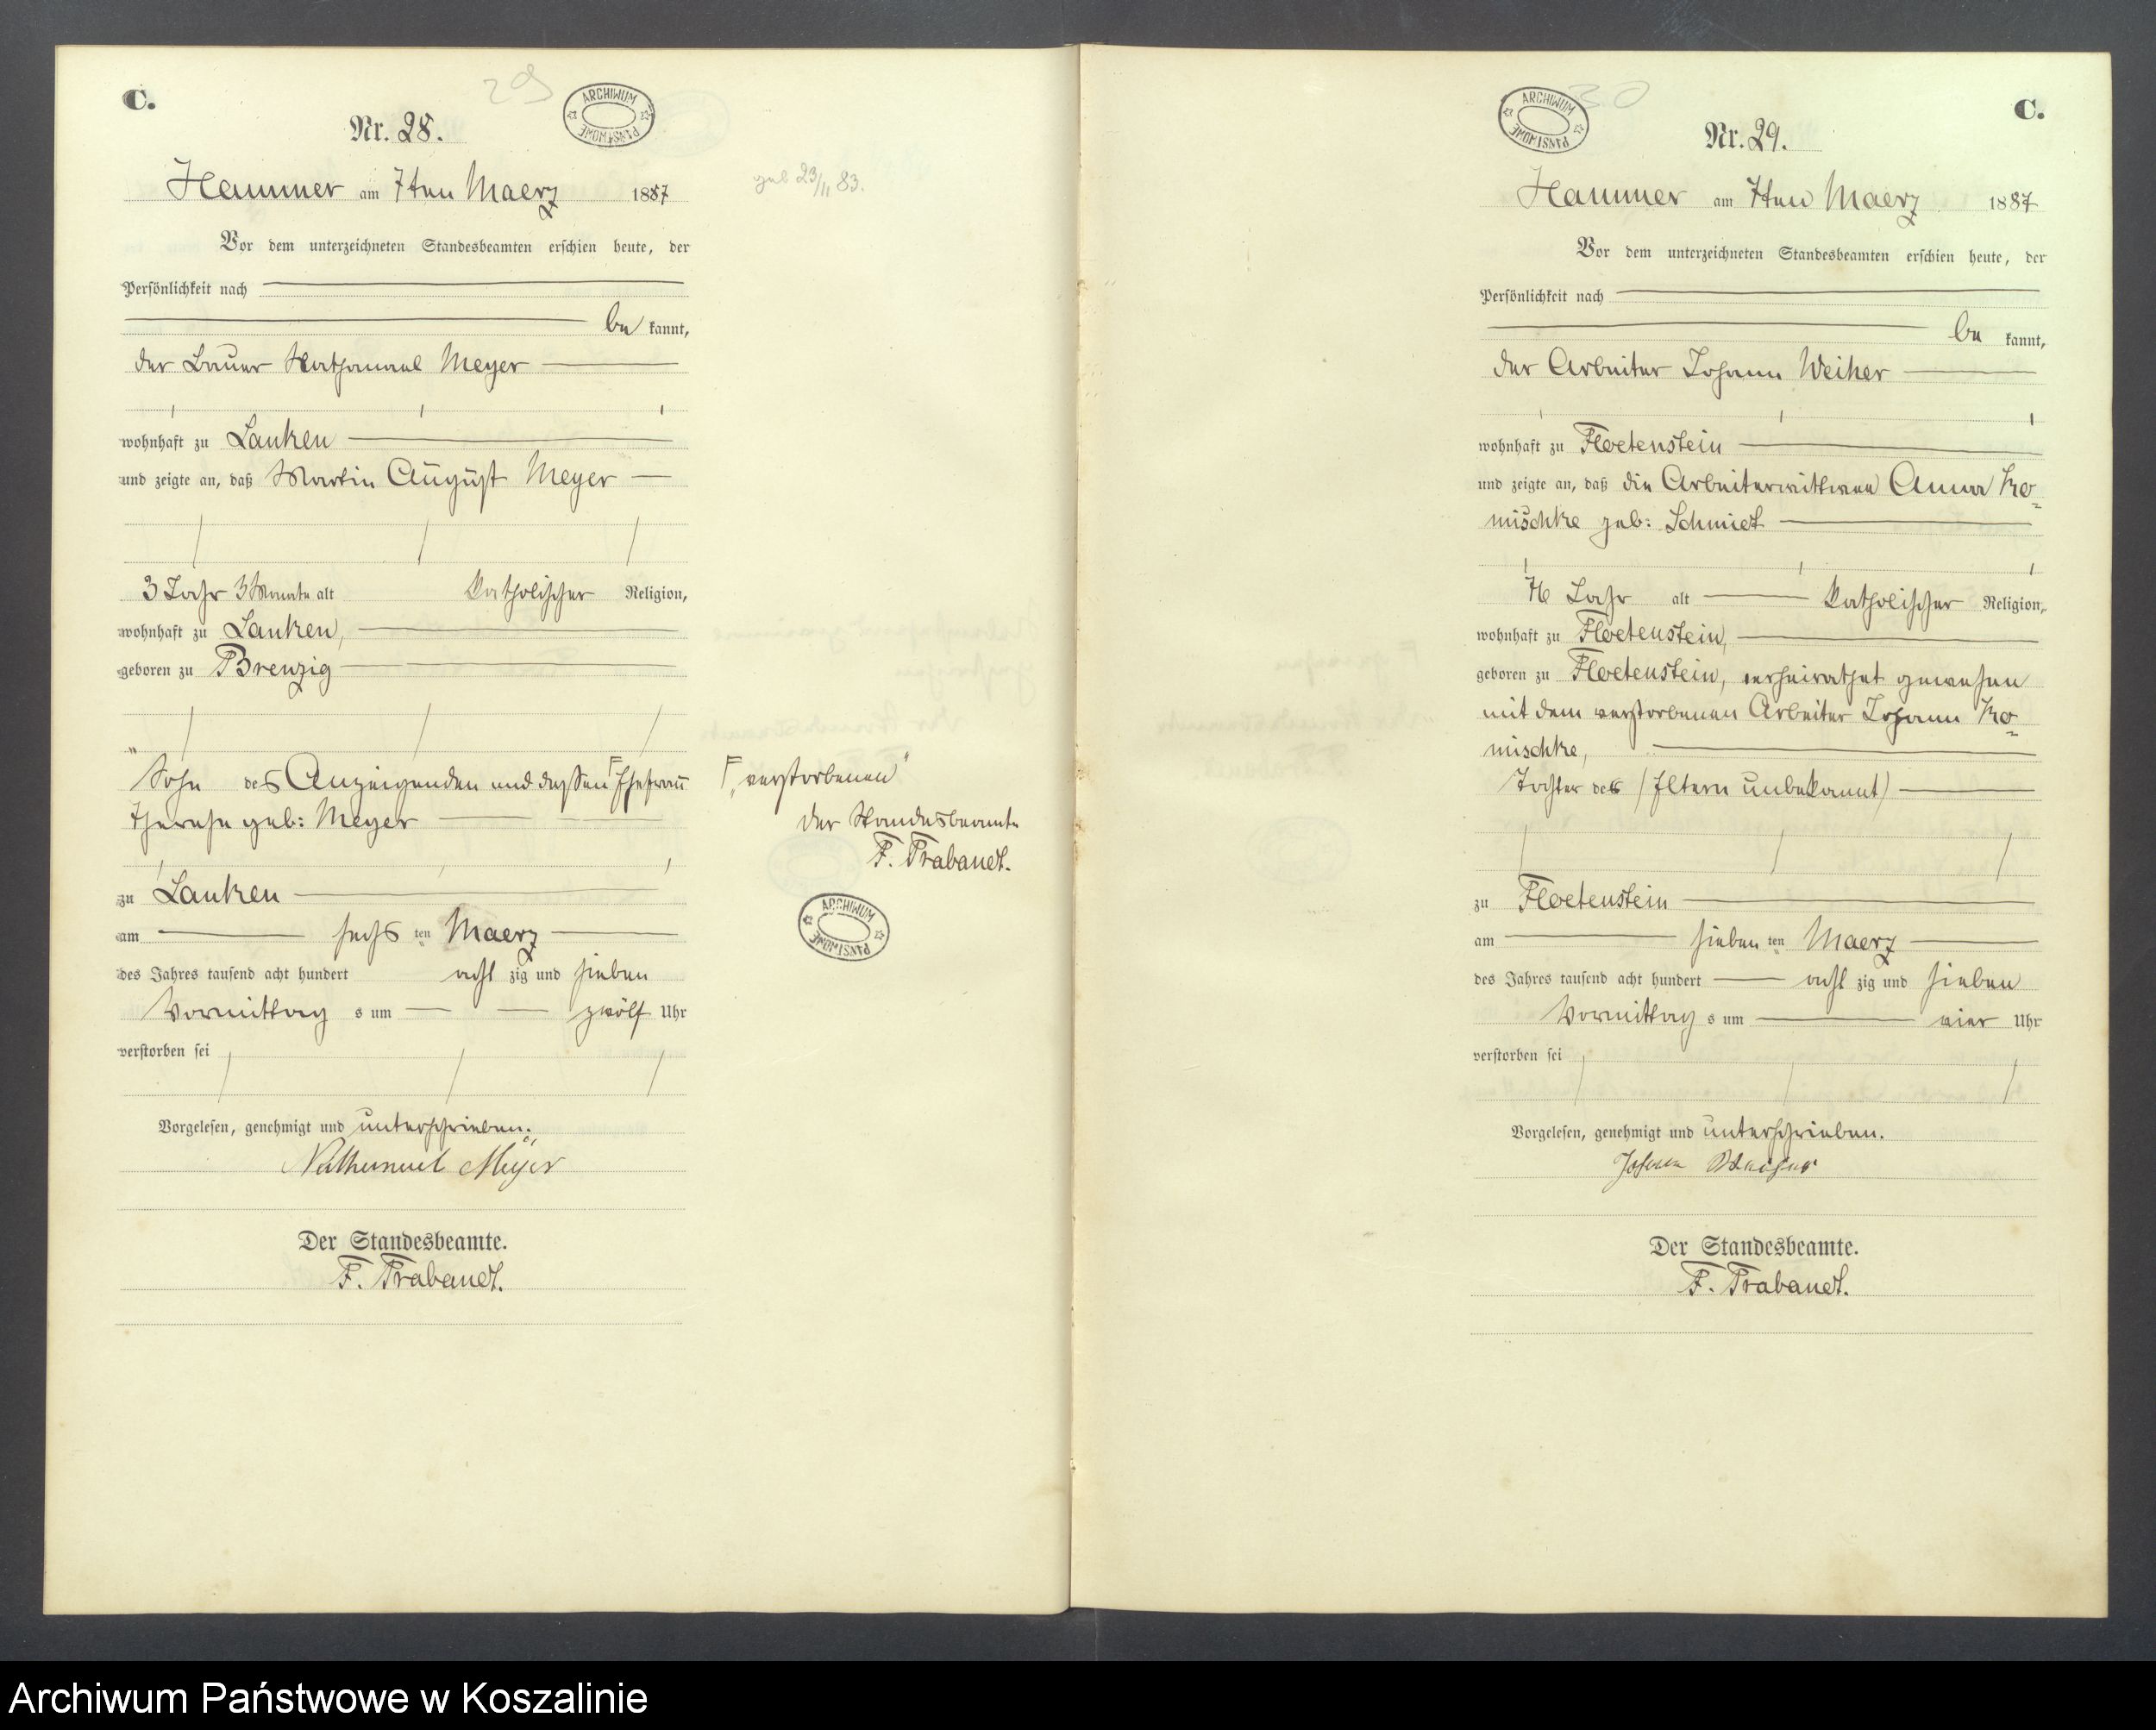 C.
29
ARCHIWUM PAŃSTWOWE
Nr. 28.
Hammer am 7ten Maerz 1887
geb 23/11 83.
Vor dem unterzeichneten Standesbeamten erschien heute, der
Persönlichkeit nach
be kannt,
der Bauer Nathanael Meyer
wohnhaft zu Lanken
und zeigte an, daß Martin August Meyer
3 Jahr 3 Monate alt katholischer Religion,
wohnhaft zu Lanken,
geboren zu Brenzig
Sohn des Anzeigenden und dessen F Ehefrau
Therese geb: Meyer
zu Lanken
am sechs ten Maerz
des Jahres tausend acht hundert acht zig und sieben
Vormittag s um zwölf Uhr
verstorben sei
Vorgelesen, genehmigt und unterschrieben.
Nathanael Meyer
Der Standesbeamte.
F. Trabandt.
F „verstorbenen"
Der Standesbeamte
F. Trabandt.
ARCHIWUM PAŃSTWOWE
ARCHIWUM PAŃSTWOWE
30
C.
Nr. 29.
Hammer am 7ten Maerz 1887
Vor dem unterzeichneten Standesbeamten erschien heute, der
Persönlichkeit nach
be kannt,
der Arbeiter Johann Weiher
wohnhaft zu Floetenstein
und zeigte an, daß die Arbeiterwittwee Anna Ko=
mischke geb: Schmidt
76 Jahr alt katholischer Religion,
wohnhaft zu Floetenstein,
geboren zu Floetenstein, verheirathet gewesen
mit dem verstorbenen Arbeiter Johann Ko=
mischke,
Tochter des (Eltern unbekannt)
zu Floetenstein
am sieben ten Maerz
des Jahres tausend acht hundert acht zig und sieben
Vormittag s um vier Uhr
verstorben sei
Vorgelesen, genehmigt und unterschrieben.
Johann Weiher
Der Standesbeamte.
F. Trabandt.
Archiwum Państwowe w Koszalinie